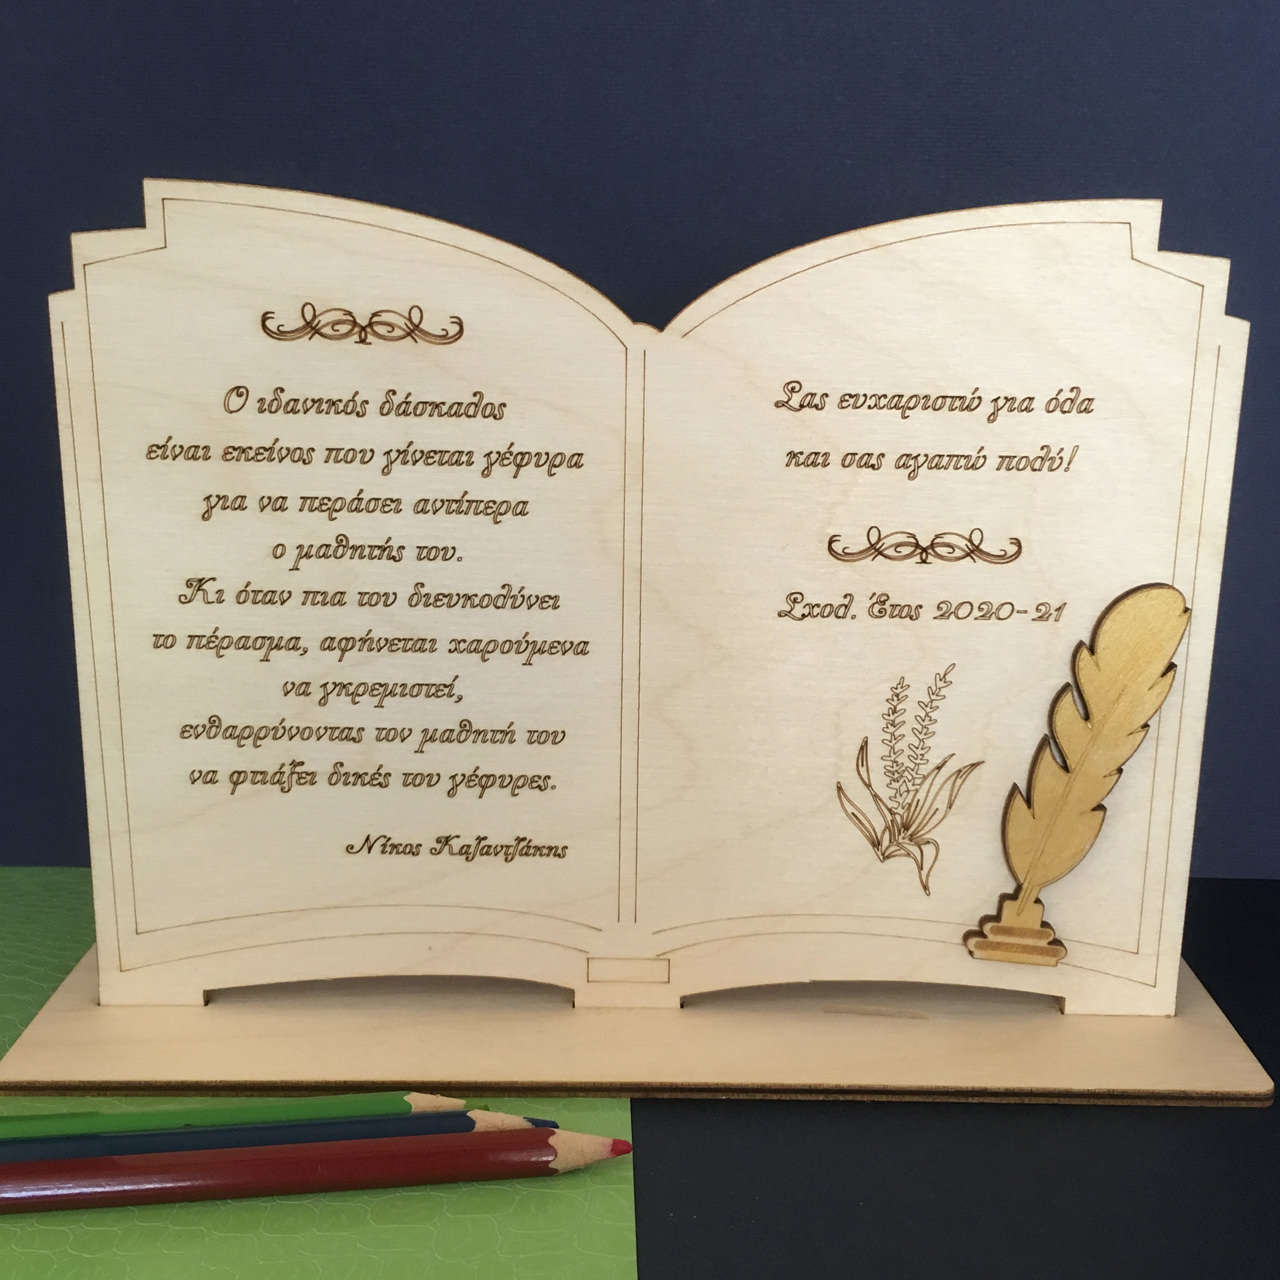 Ο ιδανικός δάσκαλος
είναι εκείνος που γίνεται γέφυρα
για να περάσει αντίπερα
ο μαθητής του.
Κι όταν πια του διευκολύνει
το πέρασμα, αφήνεται χαρούμενα
να γκρεμιστεί,
ενθαρρύνοντας τον μαθητή του
να φτιάξει δικές του γέφυρες.
Νίκος Καζαντζάκης
Σας ευχαριστώ για όλα
και σας αγαπώ πολύ!
Σχολ. Έτος 2020-21